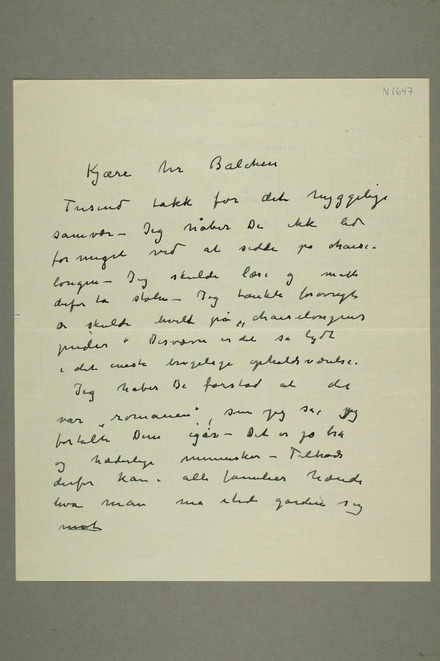 N 1647
Kjære hr Balchen
Tusind takk for det hyggelige
samvær – Jeg håber De ikk led
for meget ved at sidde på chaise-
longen – Jeg skulde læse og måtte
derfor ta stolen – Jeg tænkte forøvrigt
De skulde hvile på „chaiselongens
puder" Desværre er det så lydt
i det eneste brugelige opholdsværelse.
Jeg haber De forstod at det
var „romanen", som jeg sa, jeg
fortalte Dem igår – Det er jo bra
og hæderlige mennesker – Tilkods
derfor kan i alle familier hænde
hva man må gardere sig
mot